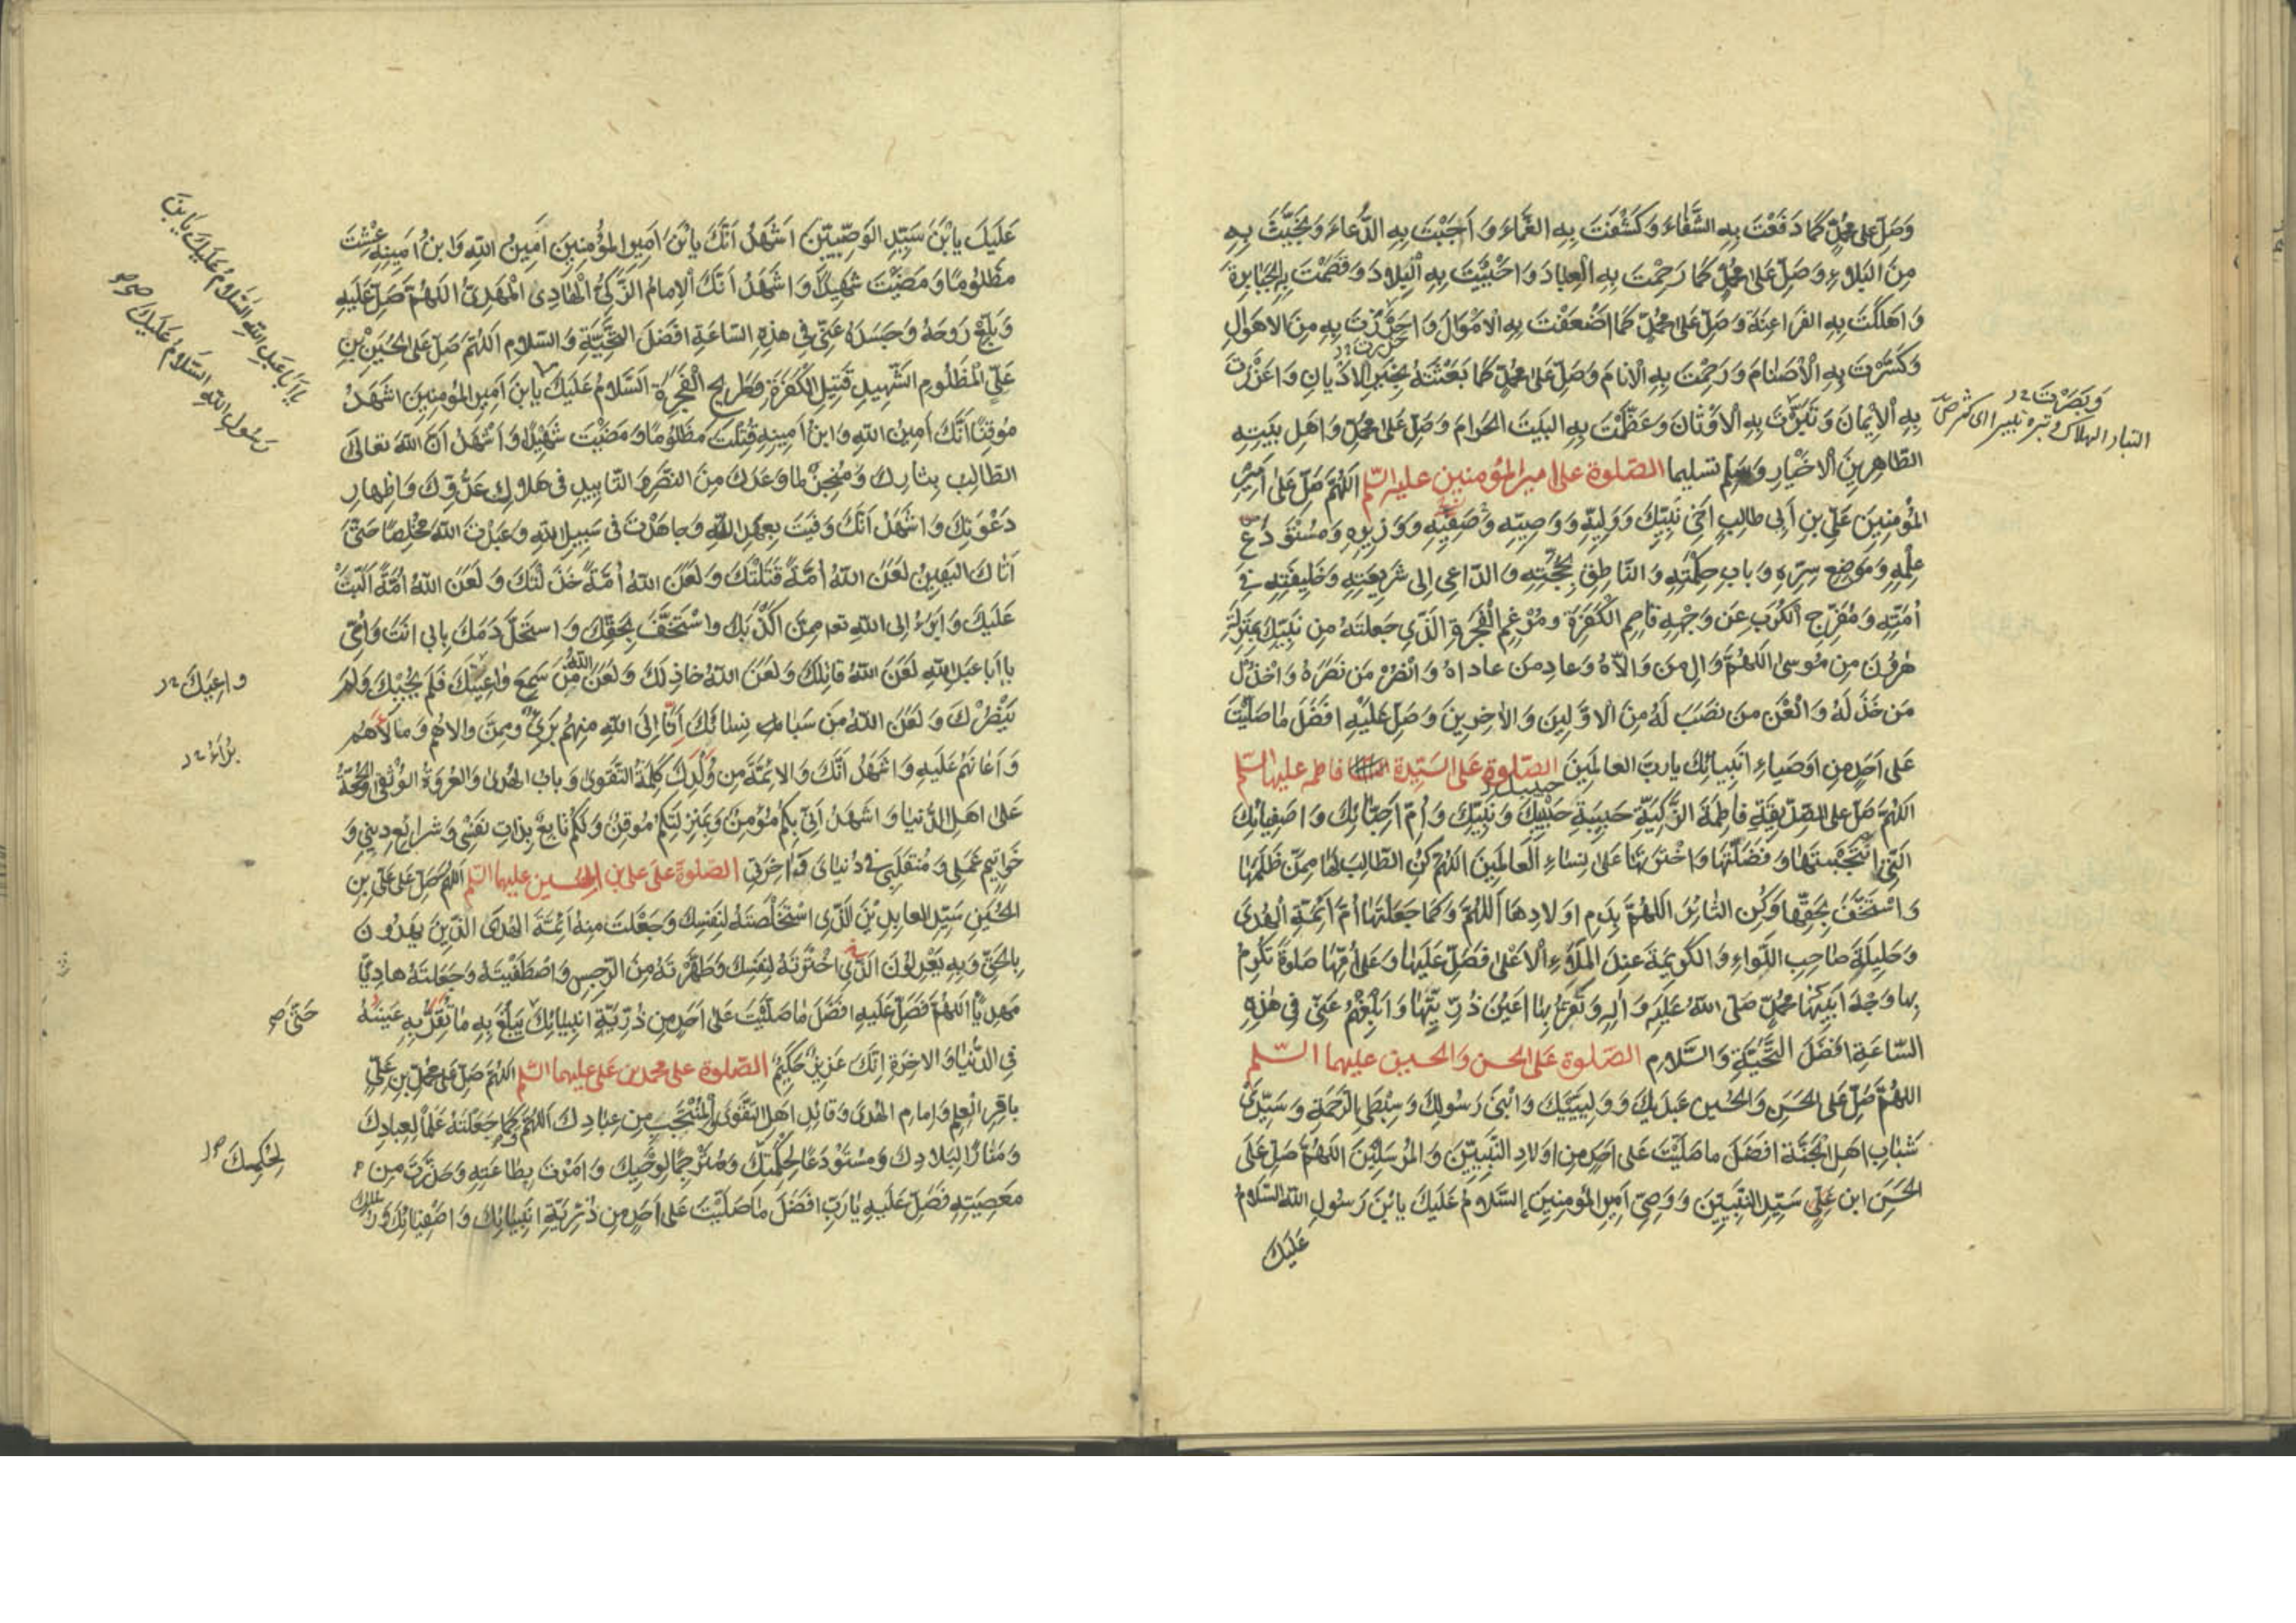 وَصَلِّ عَلى مُحَمَّدٍ كَمَا دَفَعْتَ بِهِ الشَّقَاءَ وَكَشَفْتَ بِهِ الغَمَّاءَ وَ اَجَبْتَ بِهِ الدُّعَاءَ وَ نَجَّيْتَ بِهِ
مِنَ البَلاءِ وَ صَلِّ عَلى مُحَمَّدٍ كَمَا رَحِمْتَ بِهِ الْعِبادَ وَ اَحْيَيْتَ بِهِ الْبِلادَ وَ قَصَمْتَ بِهِ الجَبَابِرَةَ
وَ اَهْلَكْتَ بِهِ الفَرَاعِنَةَ وَ صَلِّ عَلى مُحَمَّدٍ كَمَا اَضْعَفْتَ بِهِ الْاَمْوَالَ وَ اَحْرَزْتَ بِهِ مِنَ الاَهْوَالِ
وَ كَسَّرْتَ بِهِ الْاَصْنَامَ وَ رَحِمْتَ بِهِ الْاَنامَ وَ صَلِّ عَلى مُحَمَّدٍ كَمَا بَعَثْتَهُ بِخَيْرِ الْاَدْيانِ وَ اَعْزَزْتَ
وَ بَصَّرْتَ
بِهِ الْاِيْمَانَ وَ تَبَّرْتَ بِهِ الْاَوْثَانَ وَ عَظَّمْتَ بِهِ البَيْتَ الحَرَامَ وَ صَلِّ عَلى مُحَمَّدٍ وَ اَهْلِ بَيْتِهِ
التبار الهلاك و تبره تتبيرا اى كسره صح
الطَّاهِرِينَ الْاَخْيارِ وَ سَلِّمْ تَسْليما الصَّلوة على امير المؤمنين عليه السّلم اَللّٰهُمَّ صَلِّ عَلى اَمِيْرِ
المُؤْمِنِينَ عَلِيِّ بنِ اَبى طالِبٍ اَخى نَبِيِّكَ وَ وَلِيِّهِ وَ وَصِيِّهِ وَ صَفِيِّهِ وَ وَزِيرِهِ وَ مُسْتَوْدَعِ
عِلْمِهِ وَ مَوْضِعِ سِرِّهِ وَ بابِ حِكْمَتِهِ وَ النّاطِقِ بِحُجَّتِهِ وَ الدّاعى اِلى شَريعَتِهِ وَ خَليفَتِهِ فى
اُمَّتِهِ وَ مُفَرِّجِ الْكُرَبِ عَنْ وَجْهِهِ قاصِمِ الْكَفَرَةِ وَ مُرْغِمِ الْفَجَرَةِ الَّذِى جَعَلْتَهُ مِن نَبِيِّكَ بِمَنْزِلَةِ
هٰرُونَ مِن مُوسى اَللّٰهُمَّ وَالِ مَن وَالاهُ وَ عادِ مَن عاداهُ وَ انْصُرْ مَن نَصَرَهُ وَ اخْذُلْ
مَن خَذَلَهُ وَ الْعَن مَن نَصَبَ لَهُ مِنَ الاَوَّلينَ وَ الاٰخِرينَ وَ صَلِّ عَلَيْهِ اَفْضَلَ ماصَلَّيْتَ
عَلى اَحَدٍ مِن اَوْصِياءِ اَنْبِيائِكَ يارَبَّ العالَمِينَ الصّلوة على السَّيِّدة فاطمه عليها السّلم
اَللّٰهُمَّ صَلِّ عَلى الصِّدِّيقَةِ فاطِمَةَ الزَّكِيَّةِ حَبيبَةِ حَبيبِكَ وَ نَبِيِّكَ وَ اُمِّ اَحِبّائِكَ وَ اَصْفِيائِكَ
الَّتى انْتَجَبْتَها وَ فَضَّلْتَها وَ اخْتَرْتَها عَلى نِساءِ الْعالَمينَ اَللّٰهُمَّ كُنِ الطّالِبَ لَها مِمَّن ظَلَمَها
وَ اسْتَخَفَّ بِحَقِّها وَ كُنِ الثائِرَ اَللّٰهُمَّ بِدَمِ اَوْلادِها اَللّٰهُمَّ وَ كَما جَعَلْتَها اُمَّ اَئِمَّةِ الْهُدى
وَ حَليلَةَ صاحِبِ اللِّواءِ وَ الكَريمَةَ عِنْدَ المَلَاءِ الْاَعْلى فَصَلِّ عَلَيْها وَ عَلى اُمِّها صَلوةً تُكْرِمُ
بِها وَجْهَ اَبيها مُحَمَّدٍ صَلَّى اللهُ عَلَيْهِ وَ اٰلِهِ وَ تُقِرُّ بِها اَعْيُنَ ذُرِّيَّتِها وَ اَبْلِغْهُمْ عَنّى فى هٰذِهِ
السّاعَةِ اَفْضَلَ التَّحِيَّةِ وَ السَّلامِ الصّلوة على الحسن و الحسين عليهما السّلم
اللّٰهُمَّ صَلِّ عَلى الحَسَنِ وَ الحُسَيْنِ عَبْدَيْكَ وَ وَلِيَّيْكَ وَ ابْنَىْ رَسُولِكَ وَ سِبْطَىِ الرَّحْمَةِ وَ سَيِّدَىْ
شَبابِ اَهْلِ الْجَنَّةِ اَفْضَلَ ماصَلَّيْتَ عَلى اَحَدٍ مِن اَوْلادِ النَّبِيّينَ وَ المُرْسَلينَ اَللّٰهُمَّ صَلِّ عَلَى
الحَسَنِ ابنِ عَلِيٍّ سَيِّدِ النَّبِيّينَ وَ وَصِىِّ اَميرِ المُؤْمِنينَ اَلسَّلامُ عَلَيْكَ يابْنَ رَسُولِ اللهِ السَّلامُ
عَلَيْكَ
عَلَيْكَ يابْنَ سَيِّدِ الوَصِيّينَ اَشْهَدُ اَنَّكَ يابْنَ اَميرِ المُؤْمِنينَ اَمينُ اللهِ وَ ابْنُ اَمينِهِ عِشْتَ
مَظْلُومًا وَ مَضَيْتَ شَهيدًا وَ اَشْهَدُ اَنَّكَ الْاِمامُ الزَّكِىُّ الْهادِى الْمَهْدِىُّ اَللّٰهُمَّ صَلِّ عَلَيْهِ
وَ بَلِّغْ رُوحَهُ وَ جَسَدَهُ عَنّى فى هذِهِ السّاعَةِ اَفْضَلَ التَّحِيَّةِ وَ السَّلامِ اَللّٰهُمَّ صَلِّ عَلى الحُسَيْنِ بْنِ
عَلِىٍّ الْمَظْلُومِ الشَّهيدِ قَتيلِ الْكَفَرَةِ وَ طَريحِ الْفَجَرَةِ اَلسَّلامُ عَلَيْكَ يابنَ اَميرِ المُؤْمِنينَ اَشْهَدُ
يا اَبا عَبْدِ اللهِ السَّلامُ عَلَيْكَ يَا بْنَ
رَسُولِ اللهِ السَّلامُ عَلَيْكَ صح
مُوقِنًا اَنَّكَ اَمينُ اللهِ وَ ابْنُ اَمينِهِ قُتِلْتَ مَظْلُومًا وَ مَضَيْتَ شَهيدًا وَ اَشْهَدُ اَنَّ اللهَ تَعالى
الطّالِبُ بِثارِكَ وَ مُنْجِزٌ ما وَعَدَكَ مِنَ النَّصْرِ وَ التَّاييدِ فى هَلاكِ عَدُوِّكَ وَ اِظْهارِ
دَعْوَتِكَ وَ اَشْهَدُ اَنَّكَ وَفَيْتَ بِعَهْدِ اللهِ وَ جاهَدْتَ فى سَبيلِ اللهِ وَ عَبَدْتَ اللهَ مُخْلِصًا حَتّى
اَتاكَ اليَقينُ لَعَنَ اللهُ اُمَّةً قَتَلَتْكَ وَ لَعَنَ اللهُ اُمَّةً خَذَلَتْكَ وَ لَعَنَ اللهُ اُمَّةً اَلَّبَتْ
عَلَيْكَ وَ اَبْرَءُ اِلى اللهِ تعـ مِمَّن اَكْذَبَكَ وَ اسْتَخَفَّ بِحَقِّكَ وَ اسْتَحَلَّ دَمَكَ بِابى اَنْتَ وَ اُمّى
يا اَبا عَبْدِ اللهِ لَعَنَ اللهُ قاتِلَكَ وَ لَعَنَ اللهُ خاذِلَكَ وَ لَعَنَ اللهُ مَن سَمِعَ واعِيَتَكَ فَلَمْ يُجِبْكَ وَ لَمْ
واعِيَكَ
يَنْصُرْكَ وَ لَعَنَ اللهُ مَن سَبا نِسائَكَ اَنَا اِلَى اللهِ مِنْهُمْ بَرىٌ وَ مِمَّن والاهُم وَ مالَاَهُمْ
وَ اَعانَهُم عَلَيْهِ وَ اَشْهَدُ اَنَّكَ وَ الاَئِمَّةَ مِن وُلْدِكَ كَلِمَةُ التَّقْوى وَ بابُ الهُدى وَ العُرْوَةُ الوُثْقى وَ الحُجَّةُ
عَلى اَهْلِ الدُّنيا وَ اَشْهَدُ اَنّى بِكُمْ مُؤْمِنٌ وَ بِمَنْزِلَتِكُمْ مُوقِنٌ وَ لَكُمْ تابِعٌ بِذاتِ نَفْسى وَ شَرايِعِ دينى وَ
خَواتيمِ عَمَلى وَ مُنْقَلَبى فى دُنْياىَ وَ اٰخِرَتى الصّلوة على على بن الحسين عليهما السّلم اَللّٰهُمَّ صَلِّ عَلى عَلِىِّ بنِ
الحُسَيْنِ سَيِّدِ العابِدينَ الَّذِى اسْتَخْلَصْتَهُ لِنَفْسِكَ وَ جَعَلْتَ مِنْهُ اَئِمَّةَ الهُدى الَّذينَ يَهْدُونَ
بِالحَقِّ وَ بِهِ يَعْدِلُونَ الَّذى اخْتَرْتَهُ لِنَفْسِكَ وَ طَهَّرْتَهُ مِنَ الرِّجْسِ وَ اصْطَفَيْتَهُ وَ جَعَلْتَهُ هادِيًا
مَهْدِيًّا اَللّٰهُمَّ فَصَلِّ عَلَيْهِ اَفْضَلَ ماصَلَّيْتَ عَلى اَحَدٍ مِن ذُرِّيَّةِ اَنْبِيائِكَ يَبْلُغُ بِهِ ما تُقِرُّ بِهِ عَيْنَهُ
حَتّى صح
فِى الدُّنْيا وَ الاٰخِرَةِ اِنَّكَ عَزيزٌ حَكيمٌ الصّلوة على محمد بن على عليهما السّلم اَللّٰهُمَّ صَلِّ عَلى مُحَمَّدِ بنِ عَلِىٍّ
باقِرِ العِلْمِ وَ اِمامِ الهُدى وَ قائِدِ اَهْلِ التَّقْوى وَ الْمُنْتَجَبِ مِن عِبادِكَ اَللّٰهُمَّ وَ كَما جَعَلْتَهُ عَلَمًا لِعِبادِكَ
وَ مَنارًا لِبِلادِكَ وَ مُسْتَوْدَعًا لِحِكْمَتِكَ وَ مُتَرْجِمًا لِوَحْيِكَ وَ اَمَرْتَ بِطاعَتِهِ وَ حَذَّرْتَ مِن
لِحُكْمِكَ
مَعْصِيَتِهِ فَصَلِّ عَلَيْهِ يارَبِّ اَفْضَلَ ماصَلَّيْتَ عَلى اَحَدٍ مِن ذُرِّيَّةِ اَنْبِيائِكَ وَ اَصْفِيائِكَ وَ رُسُلِكَ